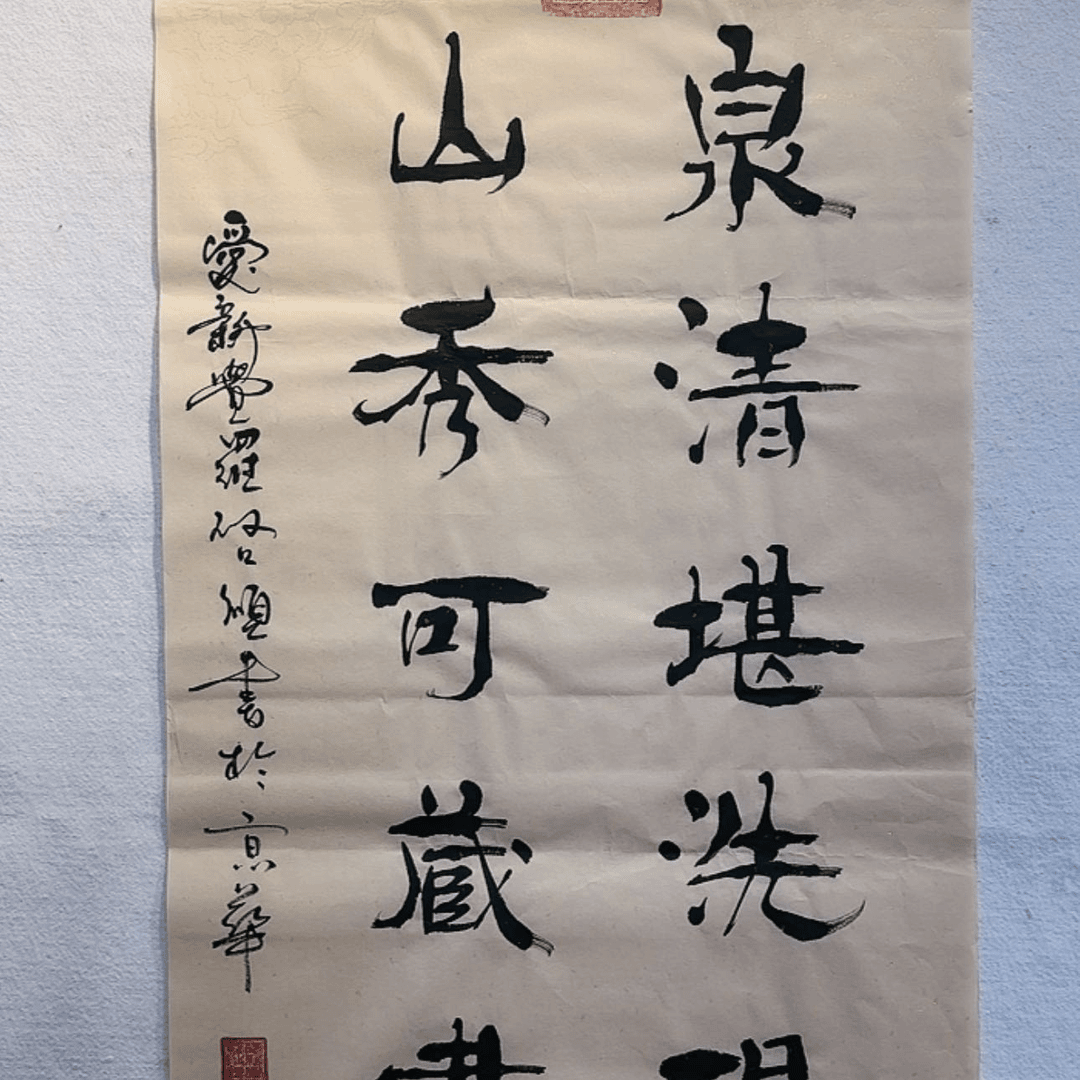 泉清堪洗
山秀可藏
愛新覺羅啓頤書於京華